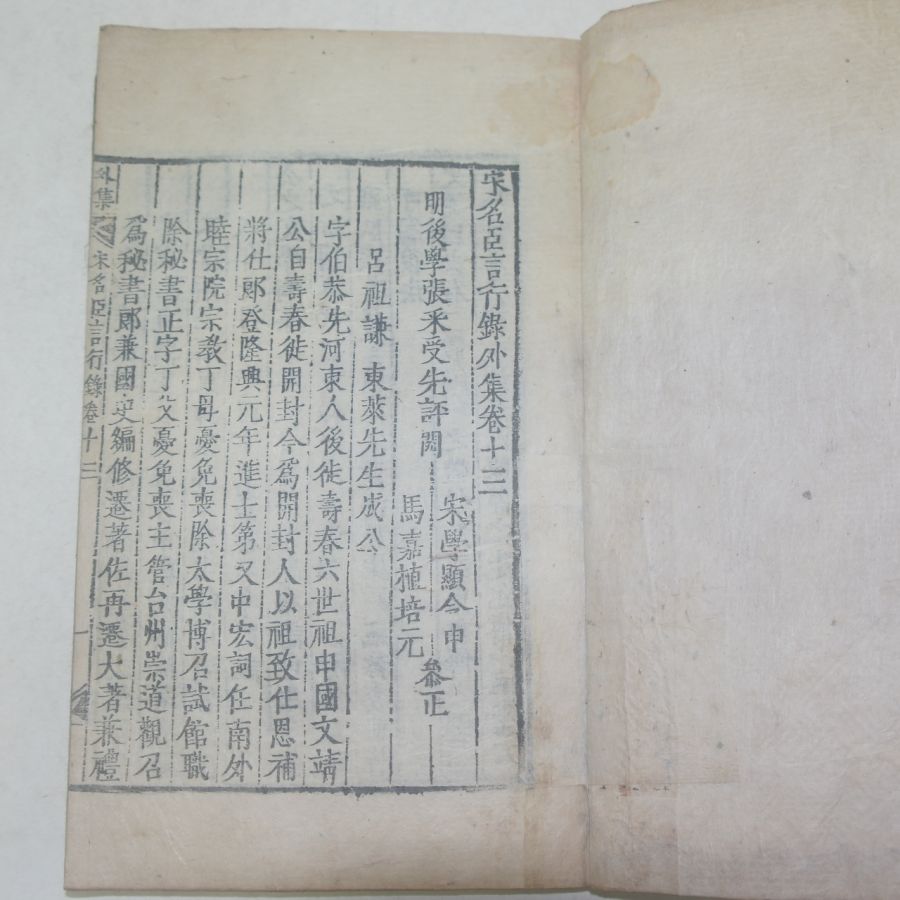 宋名臣言行錄外集卷十三
明後學張采受先評閱
宋學顯令申
馬嘉植培元
叅正
呂祖謙　東萊先生成公
字伯恭先河東人後徙壽春六世祖申國文靖
公自壽春徙開封今爲開封人以祖致仕恩補
將仕郎登隆興元年進士第又中宏詞任南外
睦宗院宗教丁母憂免喪除太學博召試館職
除秘書正字丁父憂免喪主管台州崇道觀召
爲秘書郎兼國史編修遷著佐再遷大著兼禮
外集
宋名臣言行錄卷十三
一